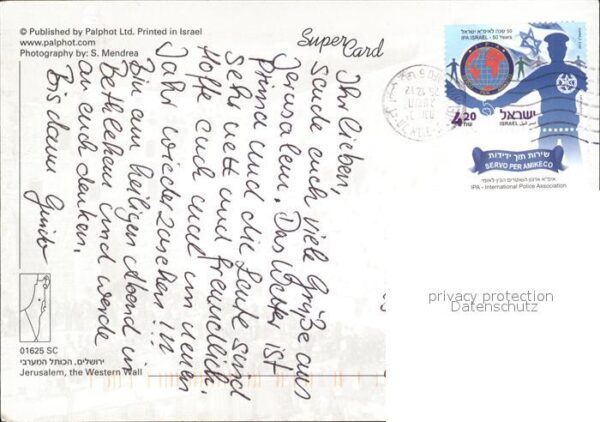 © Published by Palphot Ltd. Printed in Israel
www.palphot.com
Photography by: S. Mendrea
Super Card
Ihr Lieben,
sende euch viele Grüße aus
Jerusalem. Das Wetter ist
prima und die Leute sind
sehr nett und freundlich.
Hoffe euch und im neuen
Jahr wiederzusehen!!!
Bin am heiligen Abend in
Bethlehem und werde
an euch denken.
Bis dann
50 שנה לאיפ״א ישראל
IPA ISRAEL - 50 Years
4.20
ישראל
ISRAEL
שירות תוך ידידות
SERVO PER AMIKECO
איפ״א ארגון השוטרים הבין-לאומי
IPA - International Police Association
privacy protection
Datenschutz
01625 SC
ירושלים, הכותל המערבי
Jerusalem, the Western Wall